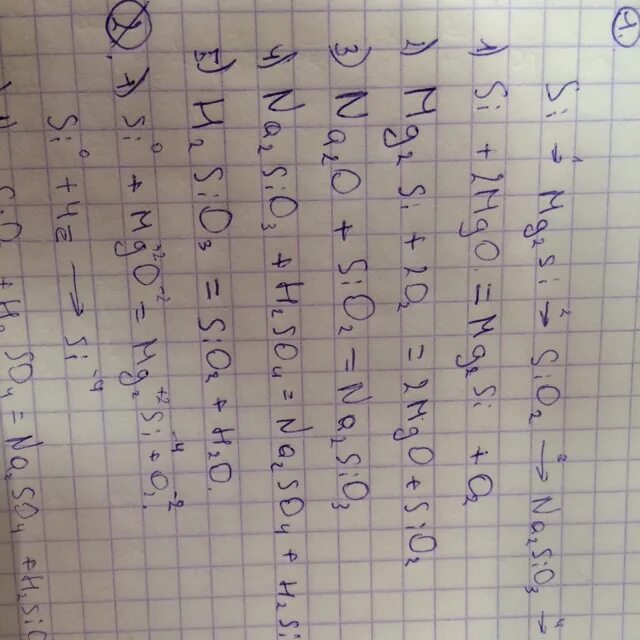 1
Si → Mg₂Si →¹ SiO₂ →² Na₂SiO₃ →⁴
1) Si + 2MgO = Mg₂Si + O₂
1) Mg₂Si + 2O₂ = 2MgO + SiO₂
3) Na₂O + SiO₂ = Na₂SiO₃
4) Na₂SiO₃ + H₂SO₄ = Na₂SO₄ + H₂Si
5) H₂SiO₃ = SiO₂ + H₂O.
2
1) Si⁰ + Mg⁺²O⁻² = Mg₂⁺²Si⁻⁴ + O₂⁻².
Si⁰ + 4ē → Si⁻⁴
SiO + H₂SO₄ = Na₂SO₄ + H₂SiO